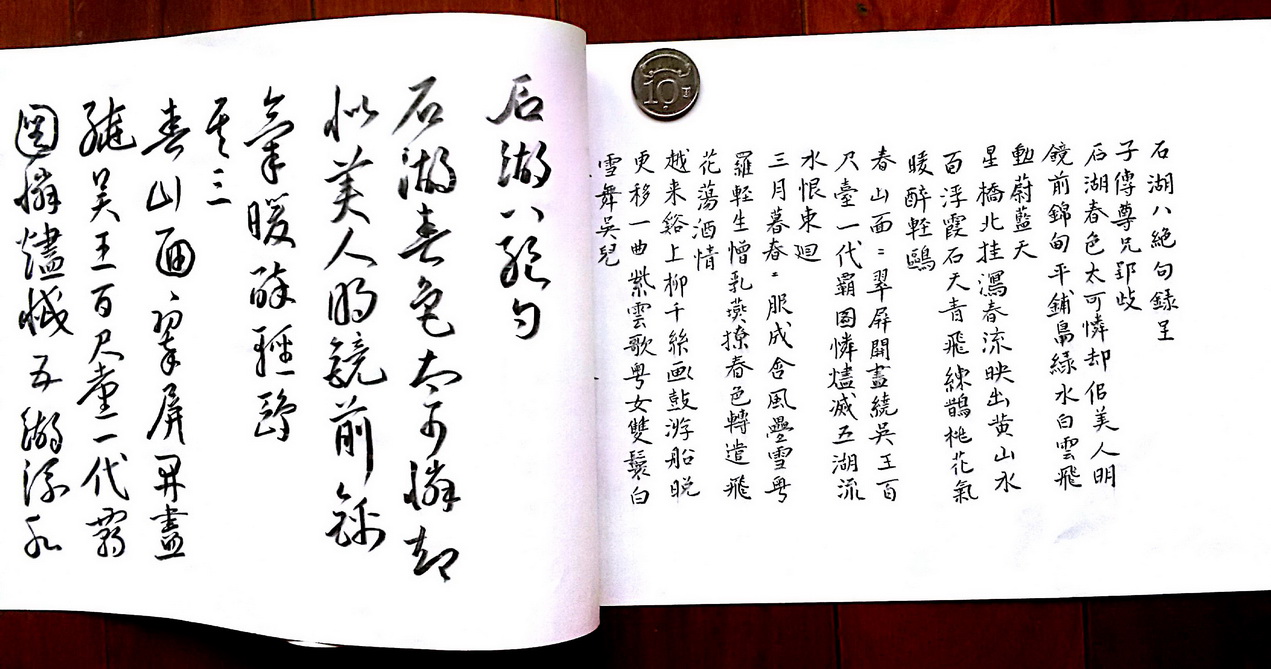 石湖八絶句録呈
子傳尊兄郢歧
石湖春色太可憐却侣美人明
鏡前錦甸平鋪鳥緑水白雲飛
勳蔚藍天
星橋北挂瀉春流映出黄山水
百浮霞石天青飛練鵲桃花氣
暖醉輕鷗
春山面〻翠屏開晝繞吳王百
尺臺一代霸图憐燼滅五湖流
水恨東廻
三月暮春〻服成含風疊雪粤
羅輕生憎乳燕撩春色轉遣飛
花蕩酒情
越来谿上柳千絲画鼓游船晚
更移一曲紫雲歌粤女雙鬟白
雪舞吳兒
10
石湖八絶句
石湖春色太可憐却
似美人明鏡前錦
氣暖醉輕鷗
其三
春山面〻翠屏開盡
繞吳王百尺臺一代霸
图憐燼滅五湖流水